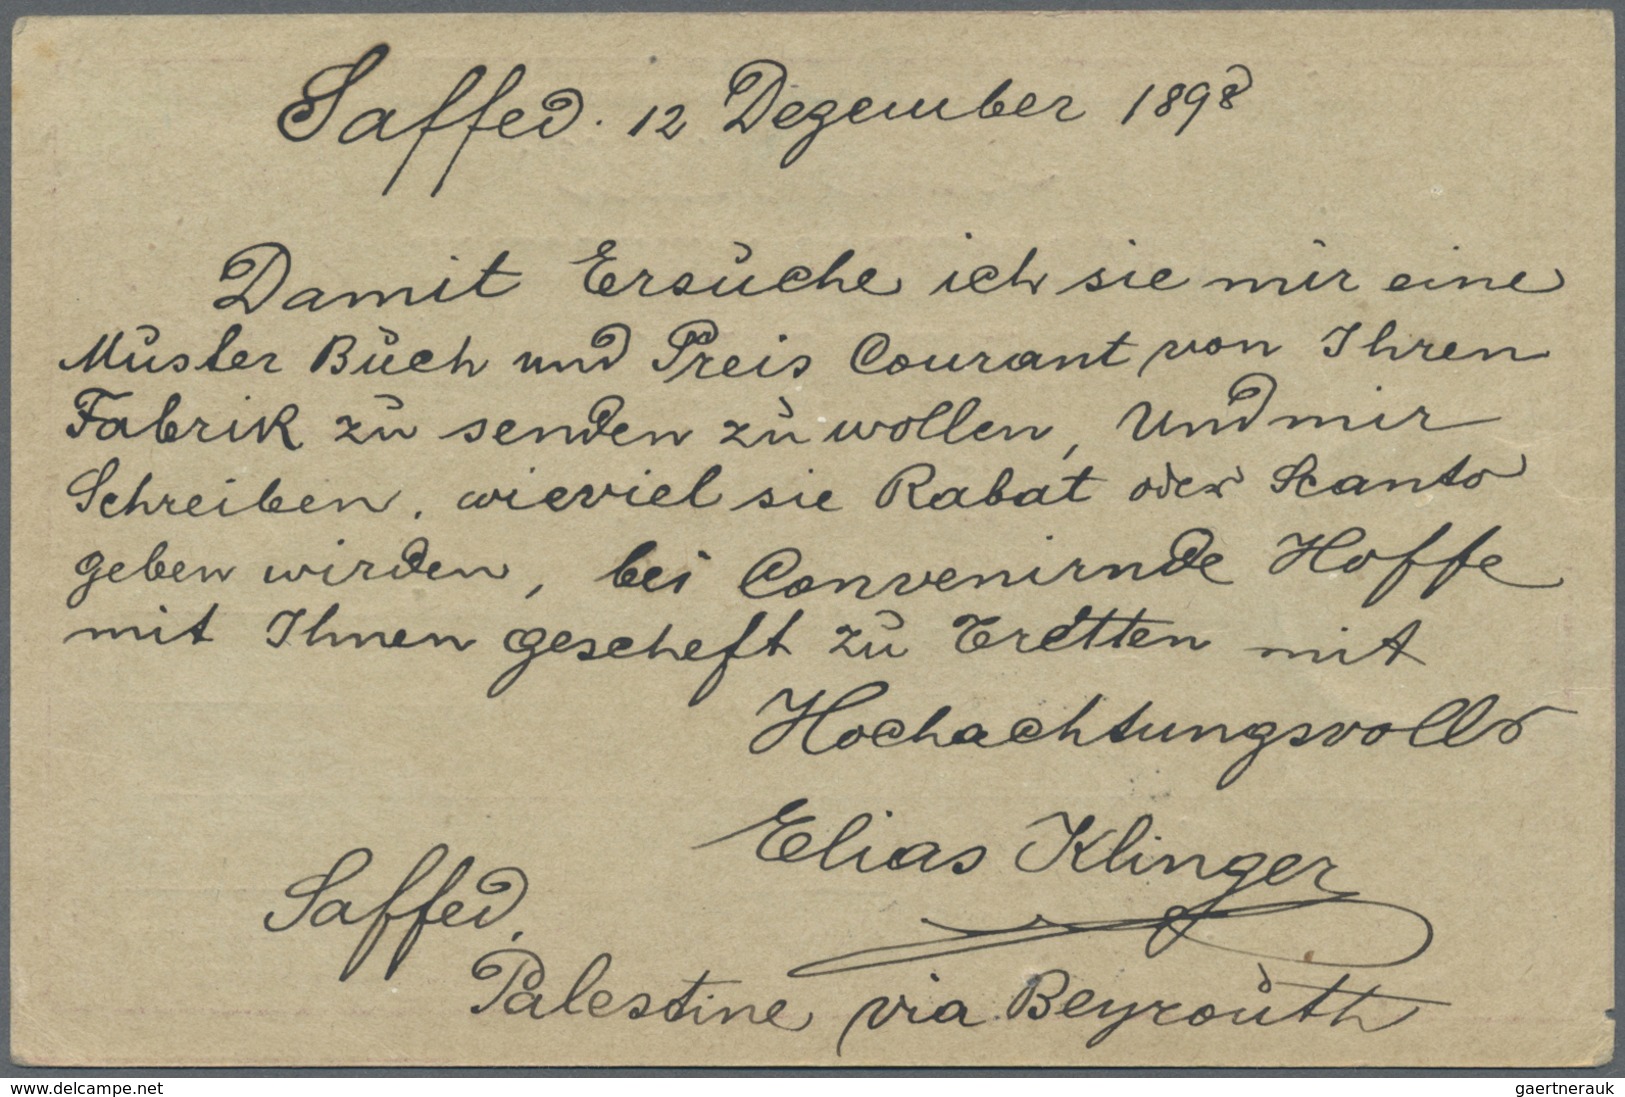 Saffed. 12 Dezember 1898
Damit Ersuche ich sie mir eine
Muster Buch und Preis Courant von Ihren
Fabrik zu senden zu wollen, Und mir
Schreiben, wieviel sie Rabat oder Scanto
geben wirden, bei Convenirnde Hoffe
mit Ihnen gescheft zu Tretten mit
Hochachtungsvolls
Elias Klinger
Saffed,
Palestine via Beyrouth
www.delcampe.net
gaertnerauk